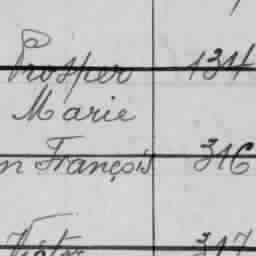 Prosper 134
Marie
n François 316
Victor 317